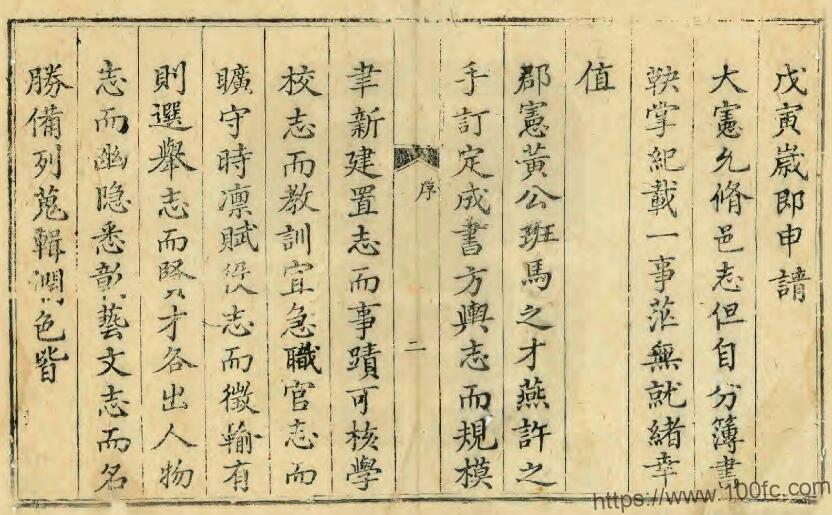 戊寅歲即申請
大憲允脩邑志但自分簿書
鞅掌紀載一事茫無就緒幸
值
郡憲黄公班馬之才燕許之
手訂定成書方輿志而規模
序
二
聿新建置志而事蹟可核學
校志而教訓宜急職官志而
曠守時凛賦役志而徵輸有
則選舉志而賢才各出人物
志而幽隐悉彰藝文志而名
勝備列蒐輯潤色皆
https://www.100fc.com